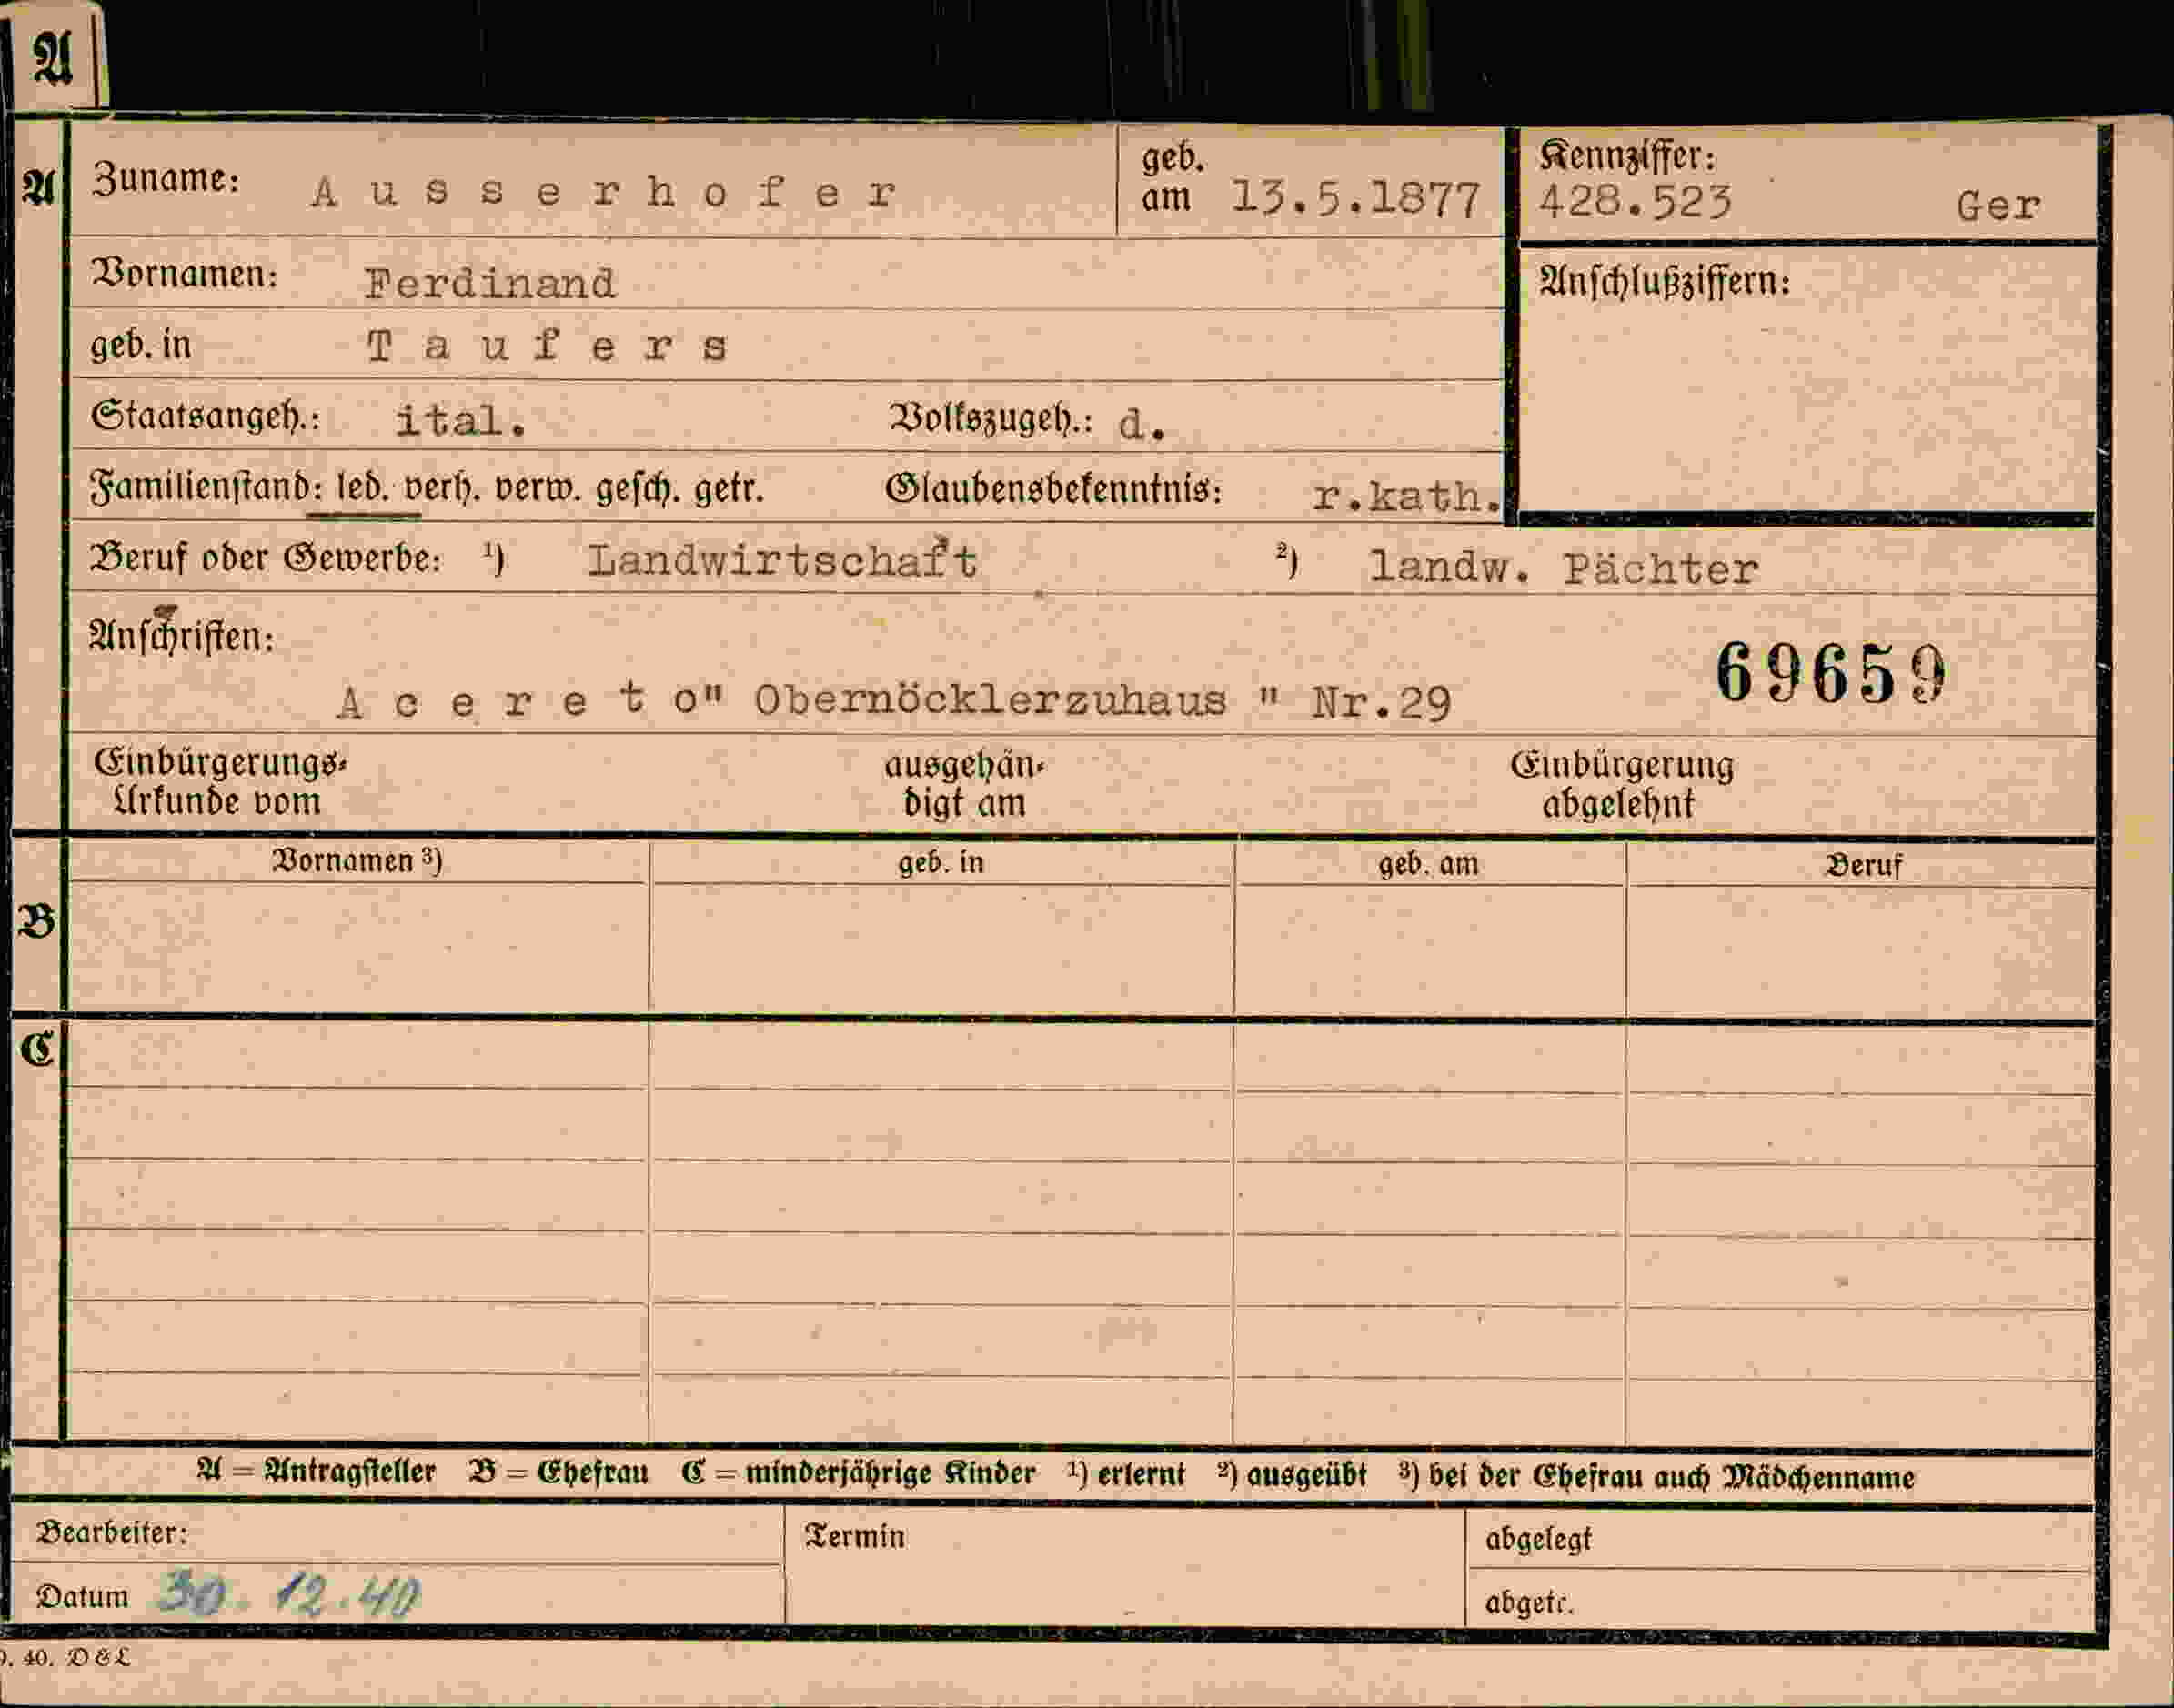 A
A Zuname: Ausserhofer geb. am 13.5.1877 Kennziffer: 428.523 Ger
Vornamen: Ferdinand Anschlußziffern:
geb. in Taufers
Staatsangeh.: ital. Volkszugeh.: d.
Familienstand: led. verh. verw. gesch. getr. Glaubensbekenntnis: r.kath.
Beruf oder Gewerbe: ¹) Landwirtschaft ²) landw. Pächter
Anschriften:
69659
Acereto" Obernöcklerzuhaus " Nr.29
Einbürgerungs- Urkunde vom ausgehän- digt am Einbürgerung abgelehnt
Vornamen ³) geb. in geb. am Beruf
B
C
A = Antragsteller B = Ehefrau C = minderjährige Kinder ¹) erlernt ²) ausgeübt ³) bei der Ehefrau auch Mädchenname
Bearbeiter: Termin abgelegt
Datum 30. 12. 40 abgetr.
40. D & L